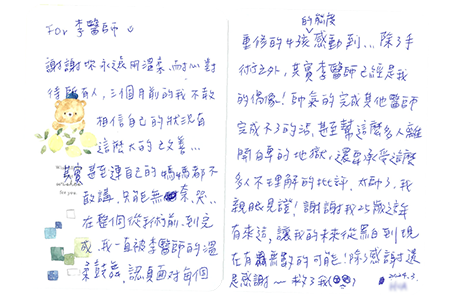 For 李醫師
謝謝你永遠用溫柔、耐心對
待所有人，三個月前的我不敢
相信自己的狀況有
這麼大的改善…
其實甚至連自己的媽媽都不
敢講，只能無奈,哭…
在整個從手術前到完
成,我一直被李醫師的溫
柔鼓勵,認真面對每個
的態度
重修的女孩感動到…除了手
術之外,其實李醫師已經是我
的偶像!帥氣的完成其他醫師
完成不了的法,甚至幫這麼多人離
開自卑的地獄,還要承受這麼
多人不理解的批評,太帥了,我
親眼見證!謝謝我25歲這年
有來這,讓我的未來從黑白到現
在有無數的可能!除了感謝還
是感謝~ 救了我
2024.3.